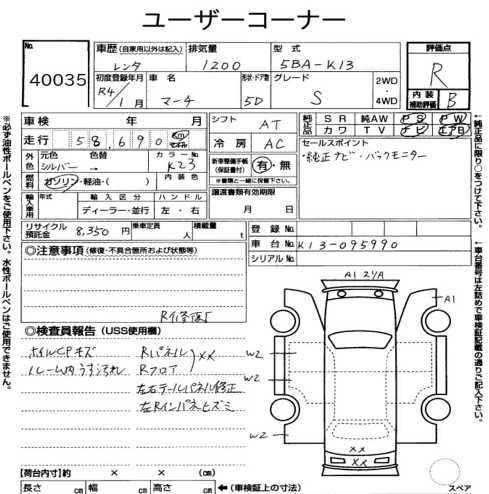 ユーザーコーナー
No.
40035
車歴 (自家用以外は記入)
レンタ
排気量
1200
型式
5BA-K13
評価点
R
初度登録年月
R4/1月
車名
マーチ
形状・ドア数
5D
グレード
S
2WD
・
4WD
内装
補助評価
B
車検 年 月
走行 58,690 km
シフト
AT
冷房
AC
純正品
SR 純AW PS PW
カワ TV ナビ エアB
外色
元色
シルバー
色替
→
カラーNo.
K23
燃料
ガソリン・軽油・( )
内装色
新車整備手帳
(保証書付)
有・無
※書類と一緒に保管下さい。
セールスポイント
・純正ナビ・バックモニター
輸入車
年式
輸入区分
ディーラー・並行
ハンドル
左・右
譲渡書類有効期限
月 日
リサイクル
預託金
8,350円
乗車定員
人
積載量
t
登録No.
車台No.
K13-095990
シリアルNo.
◎注意事項 (修復・不具合箇所および状態等)
R付修復
◎検査員報告 (USS使用欄)
Rパネル
Rフロア
××
左右テールパネル修正
左Rインパネヒズミ
A1
W2
W2
W2
××
××
【荷台内寸】約 × × (cm)
長さ cm 幅 cm 高さ cm
←(車検証上の寸法)
スペア
※必ず油性ボールペンをご使用下さい。水性ボールペンはご使用できません。
←純正品に限り○をつけて下さい。
←車台番号は左詰めで車検証記載の通りご記入下さい。